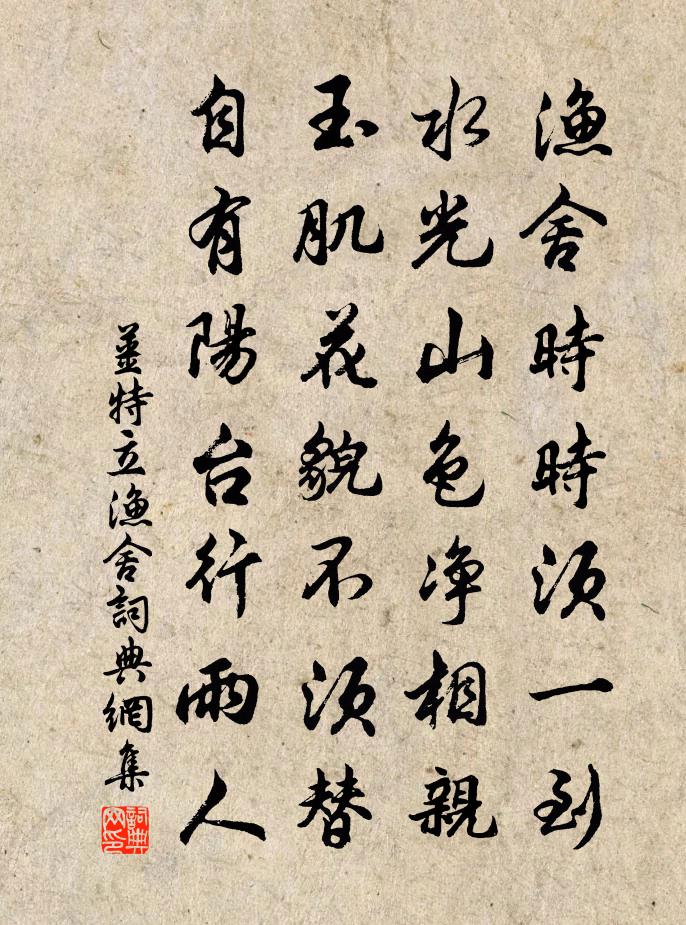 漁舍時時須一到
水光山色净相親
玉肌花貌不須替
自有陽台行雨人
姜特立漁舍詞典網集
詞典網印